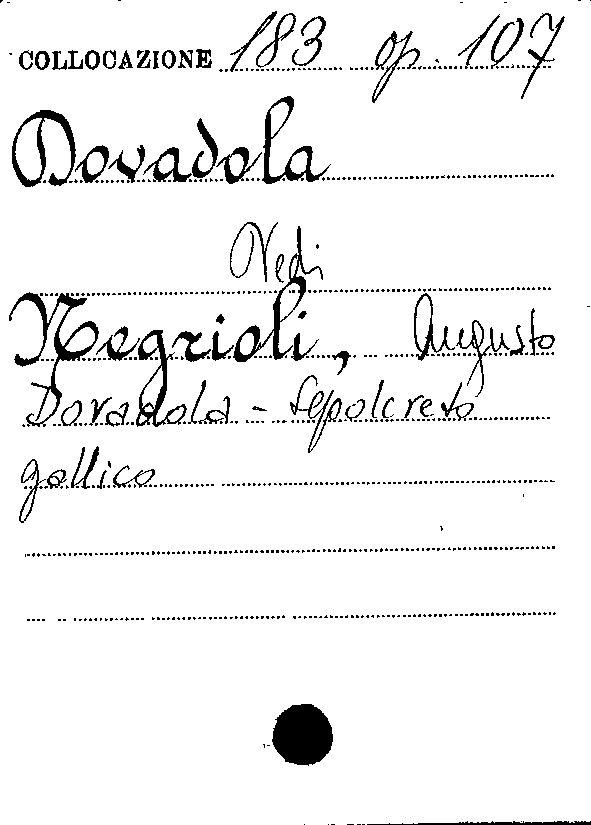 COLLOCAZIONE 183 op. 107
Dovadola
Vedi
Negrioli, Augusto
Dovadola - Sepolcreto
gallico